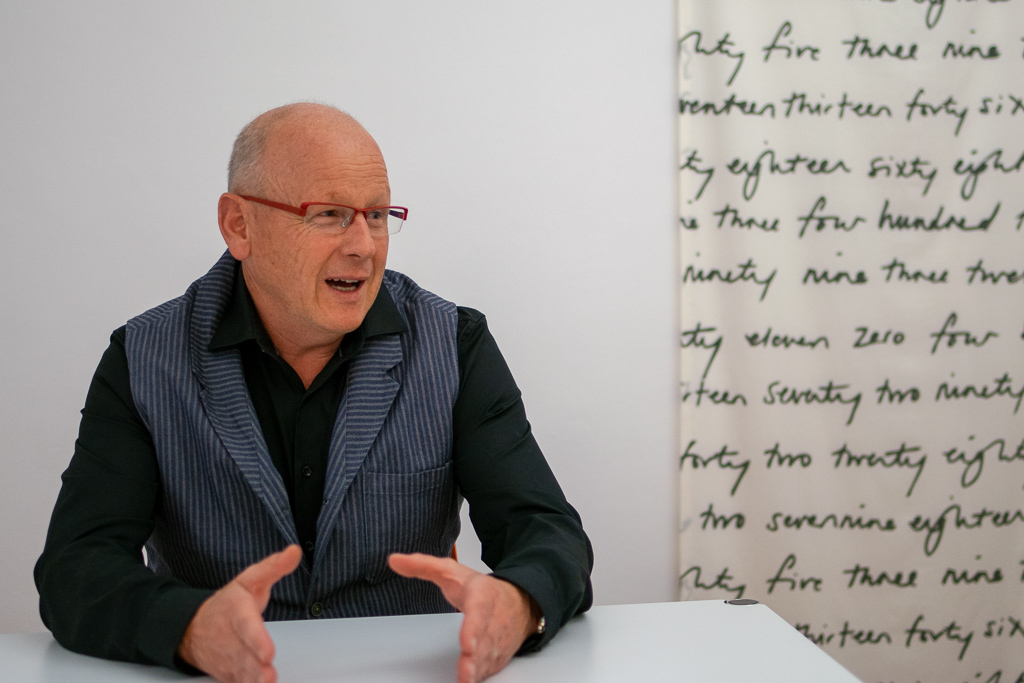 eighteen
five three nine
thirteen forty six
eighteen sixty
three four hundred
ninety nine three
eleven zero four
seventy two ninety
forty two twenty
two seven nine eighteen
five three nine
thirteen forty six